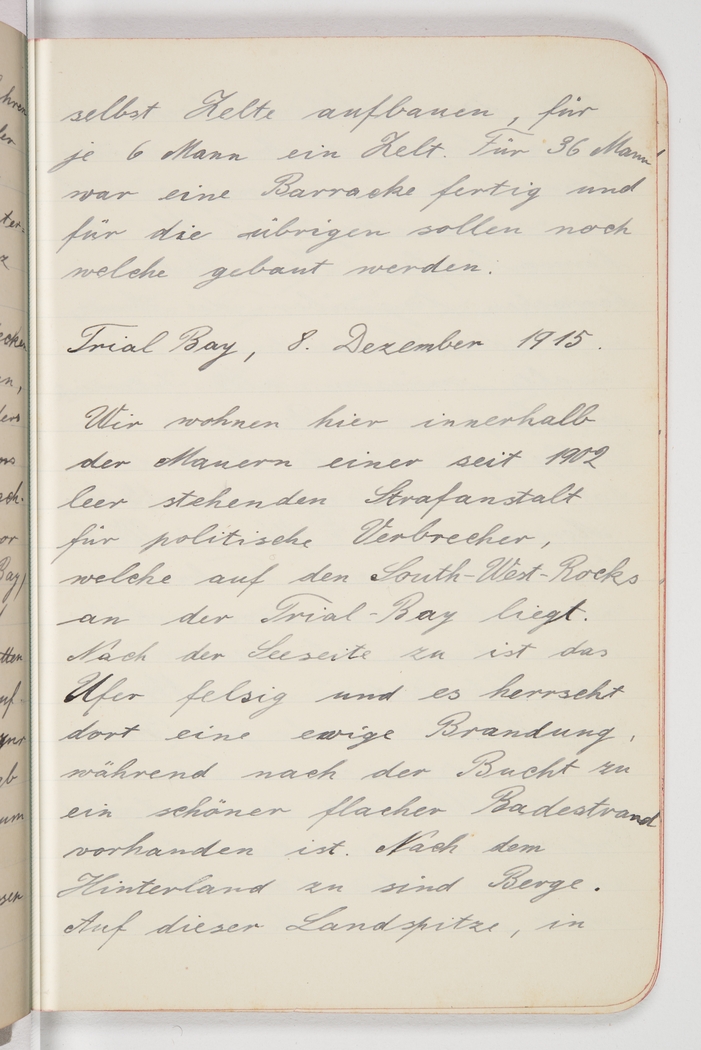 selbst Zelte aufbauen, für
je 6 Mann ein Zelt. Für 36 Mann
war eine Barracke fertig und
für die übrigen sollen noch
welche gebaut werden.
Trial Bay, 8. Dezember 1915.
Wir wohnen hier innerhalb
der Mauern einer seit 1902
leer stehenden Strafanstalt
für politische Verbrecher,
welche auf den South-West-Rocks
an der Trial-Bay liegt.
Nach der Seeseite zu ist das
Ufer felsig und es herrscht
dort eine ewige Brandung,
während nach der Bucht zu
ein schöner flacher Badestrand
vorhanden ist. Nach dem
Hinterland zu sind Berge.
Auf dieser Landspitze, in